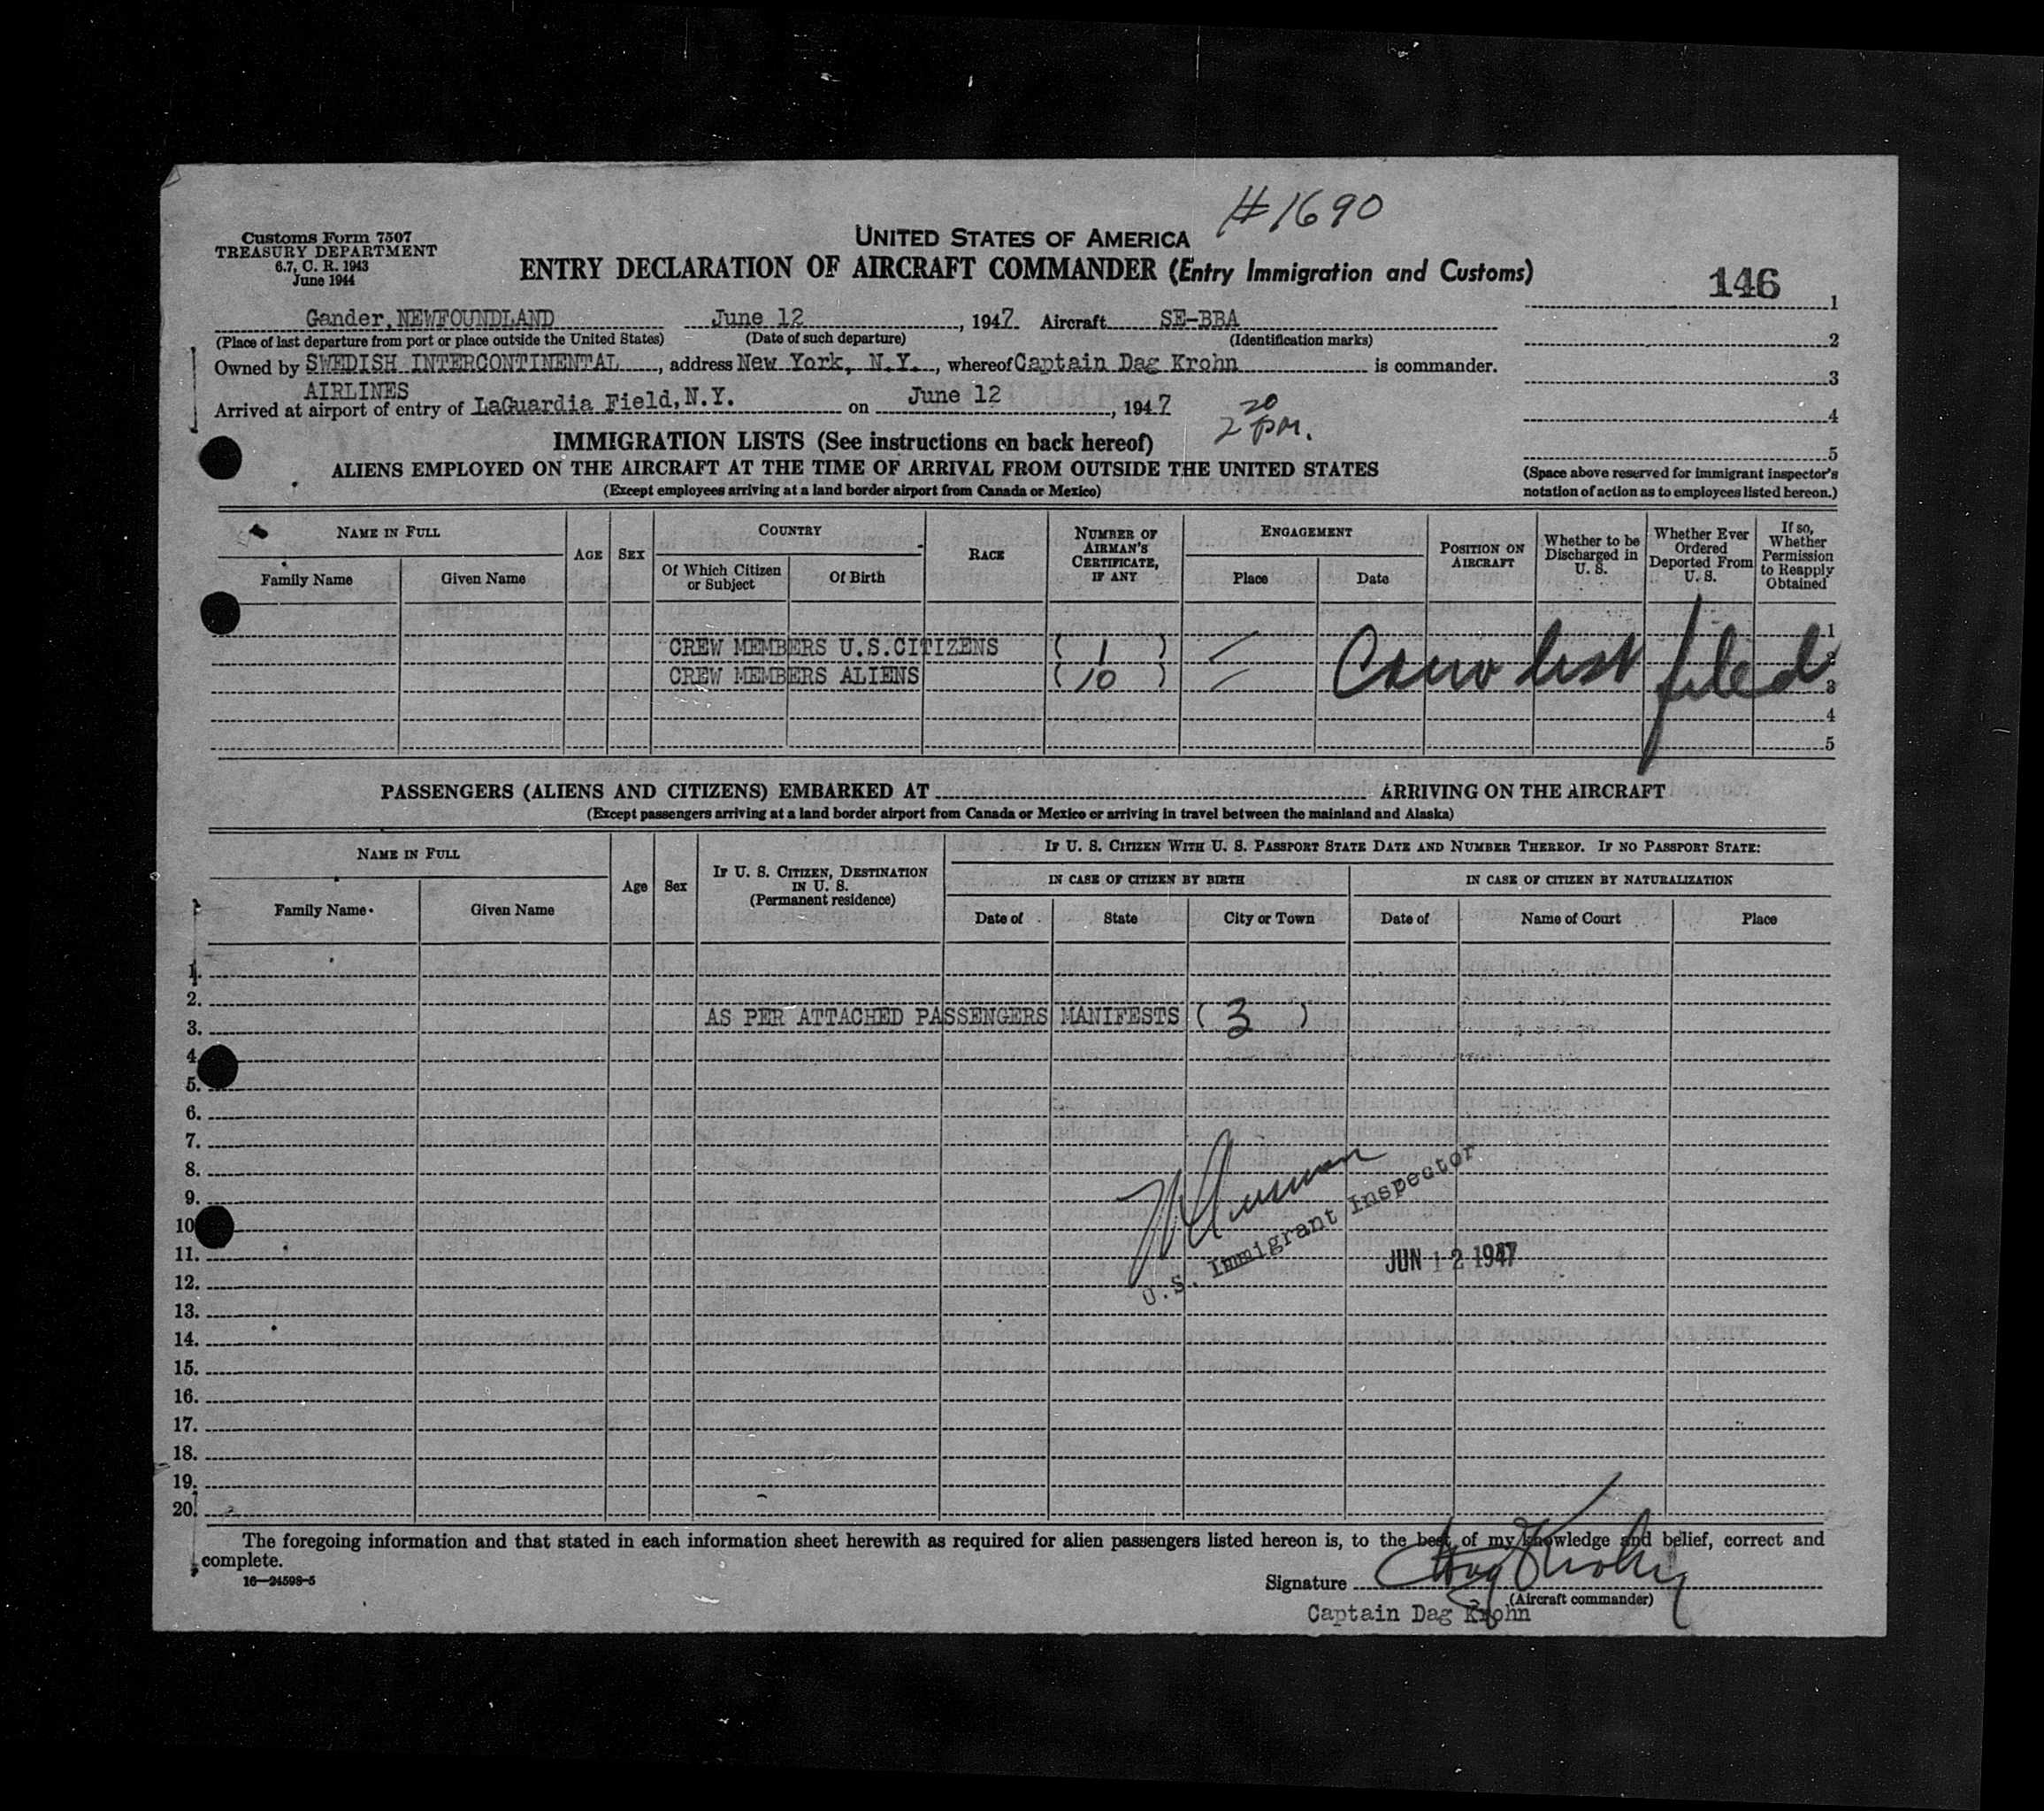 #1690
Customs Form 7507
TREASURY DEPARTMENT
6.7, C. R. 1943
June 1944
UNITED STATES OF AMERICA
ENTRY DECLARATION OF AIRCRAFT COMMANDER (Entry Immigration and Customs)
146
1
2
3
4
5
(Space above reserved for immigrant inspector's
notation of action as to employees listed hereon.)
Gander, NEWFOUNDLAND June 12, 1947. Aircraft SE-BBA
(Place of last departure from port or place outside the United States) (Date of such departure) (Identification marks)
Owned by SWEDISH INTERCONTINENTAL, address New York, N.Y., whereof Captain Dag Krohn is commander.
AIRLINES
Arrived at airport of entry of LaGuardia Field, N.Y. on June 12, 1947 2 20 pm.
IMMIGRATION LISTS (See instructions on back hereof)
ALIENS EMPLOYED ON THE AIRCRAFT AT THE TIME OF ARRIVAL FROM OUTSIDE THE UNITED STATES
(Except employees arriving at a land border airport from Canada or Mexico)
NAME IN FULL
Family Name
Given Name
AGE
SEX
COUNTRY
Of Which Citizen
or Subject
Of Birth
RACE
NUMBER OF
AIRMAN'S
CERTIFICATE,
IF ANY
ENGAGEMENT
Place
Date
POSITION ON
AIRCRAFT
Whether to be
Discharged in
U. S.
Whether Ever
Ordered
Deported From
U. S.
If so,
Whether
Permission
to Reapply
Obtained
1
CREW MEMBERS U.S.CITIZENS ( 1 ) 2
CREW MEMBERS ALIENS ( 10 ) 3
Crew list filed
4
5
PASSENGERS (ALIENS AND CITIZENS) EMBARKED AT ARRIVING ON THE AIRCRAFT
(Except passengers arriving at a land border airport from Canada or Mexico or arriving in travel between the mainland and Alaska)
NAME IN FULL
Family Name
Given Name
Age
Sex
IF U. S. CITIZEN, DESTINATION
IN U. S.
(Permanent residence)
IF U. S. CITIZEN WITH U. S. PASSPORT STATE DATE AND NUMBER THEREOF. IF NO PASSPORT STATE:
IN CASE OF CITIZEN BY BIRTH
Date of
State
City or Town
IN CASE OF CITIZEN BY NATURALIZATION
Date of
Name of Court
Place
1.
2.
AS PER ATTACHED PASSENGERS MANIFESTS ( 3 )
3.
4.
5.
6.
7.
8.
9.
10
11.
12.
13.
14.
15.
16.
17.
18.
19.
20.
U.S. Immigrant Inspector
JUN 12 1947
The foregoing information and that stated in each information sheet herewith as required for alien passengers listed hereon is, to the best of my knowledge and belief, correct and
complete.
16—24598-5
Signature Dag Krohn
(Aircraft commander)
Captain Dag Krohn